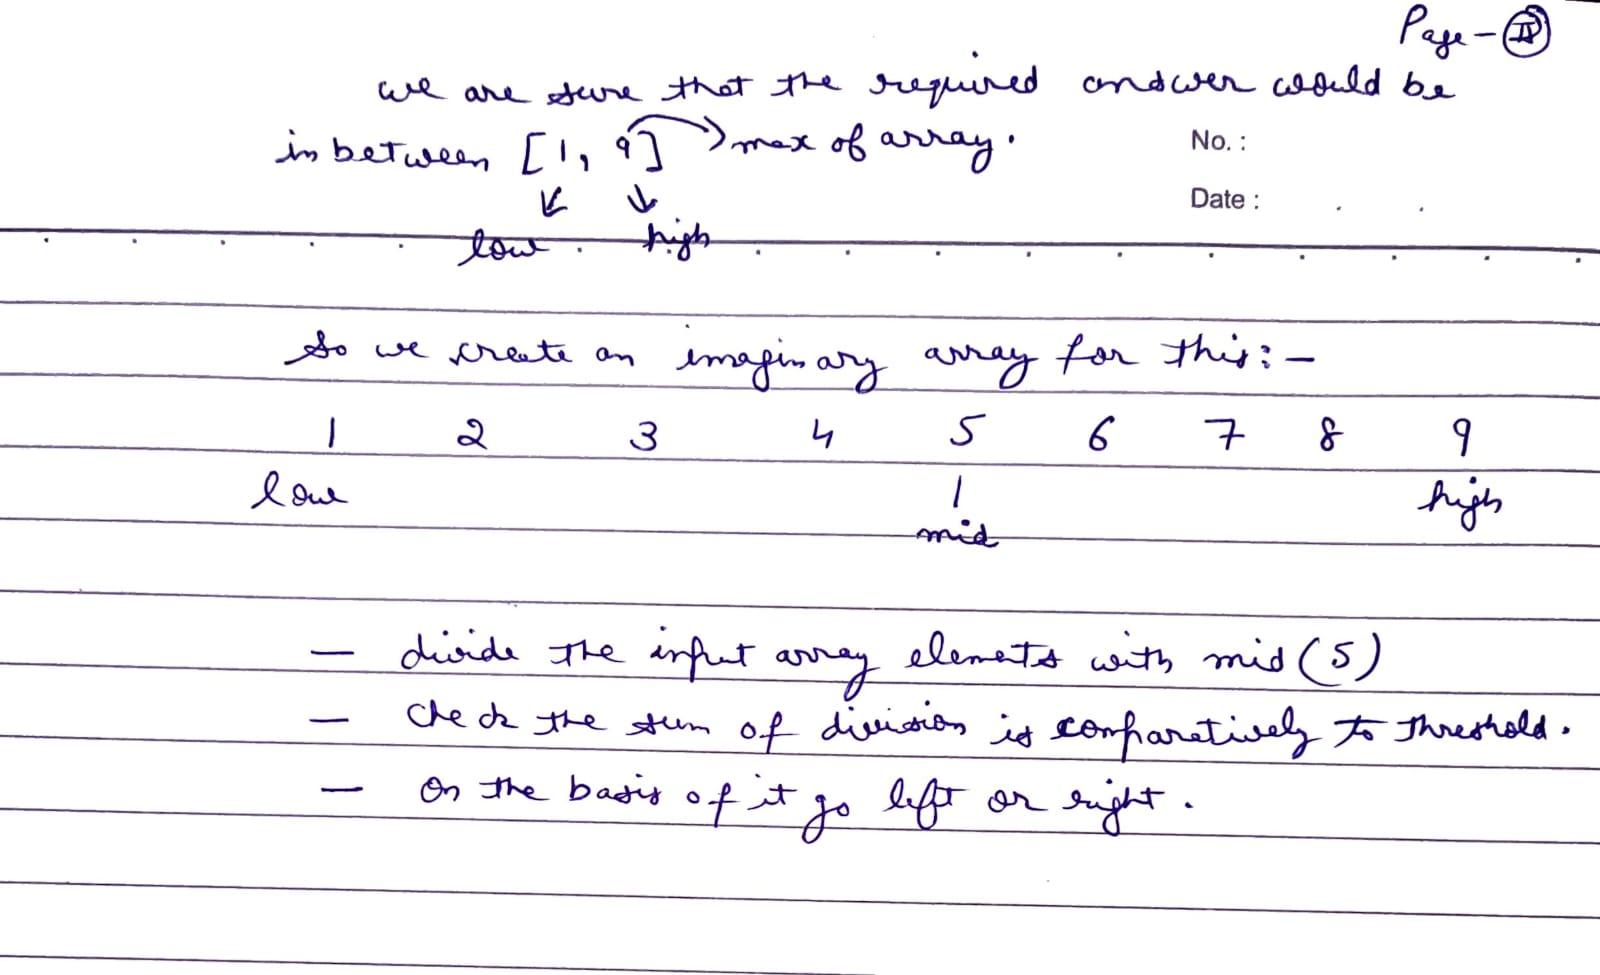 Page - II
we are sure that the required answer would be
in between [1, 9] → max of array.
No. :
Date :
low high
So we create an imaginary array for this: -
1 2 3 4 5 6 7 8 9
low | high
mid
— divide the input array elements with mid (5)
— check the sum of division is comparatively to threshold.
— On the basis of it go left or right.